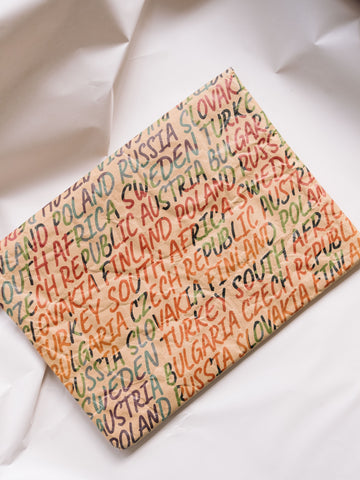 POLAND RUSSIA SLOVAK
SOUTH AFRICA SWEDEN TURKE
CZECH REPUBLIC AUSTRIA BULGAR
SLOVAKIA FINLAND POLAND RUSS
TURKEY SOUTH AFRICA SWEDEN
BULGARIA CZECH REPUBLIC AUSTRIA
RUSSIA SLOVAKIA FINLAND POLAND
SWEDEN TURKEY SOUTH AFRI
AUSTRIA BULGARIA CZECH REPUB
POLAND RUSSIA SLOVAKIA FINL